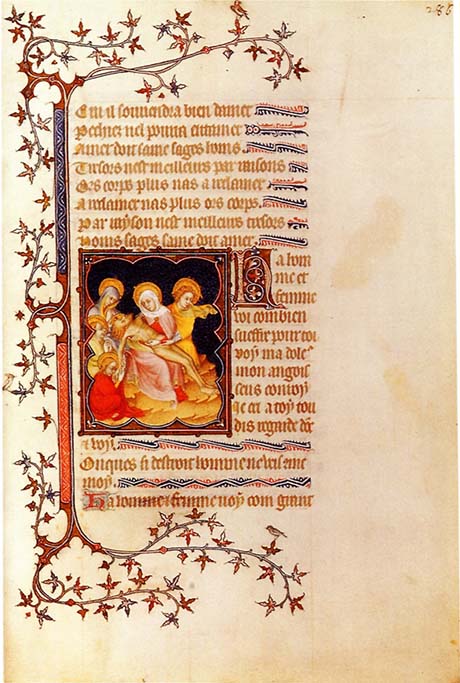 286
Cui il souviendra bien damer
Pechiez nel pourra entamer
Amer doit fame sages homs.
Tresors nest meilleurs par raisons
Ors corps plus nas a reclamer
A reclamer nas plus ors corps.
Par raison nest meilleurs tresors
Homs sages fame doit amer.
Ha hom
me et
femme
voi combien
sueffre pour toi
voy ma dole
mon angois
seus convoy
qe et a toy tou
dis regarde
et voy.
Onques si destroit homme
moy.
Ha homme et femme voy com grant